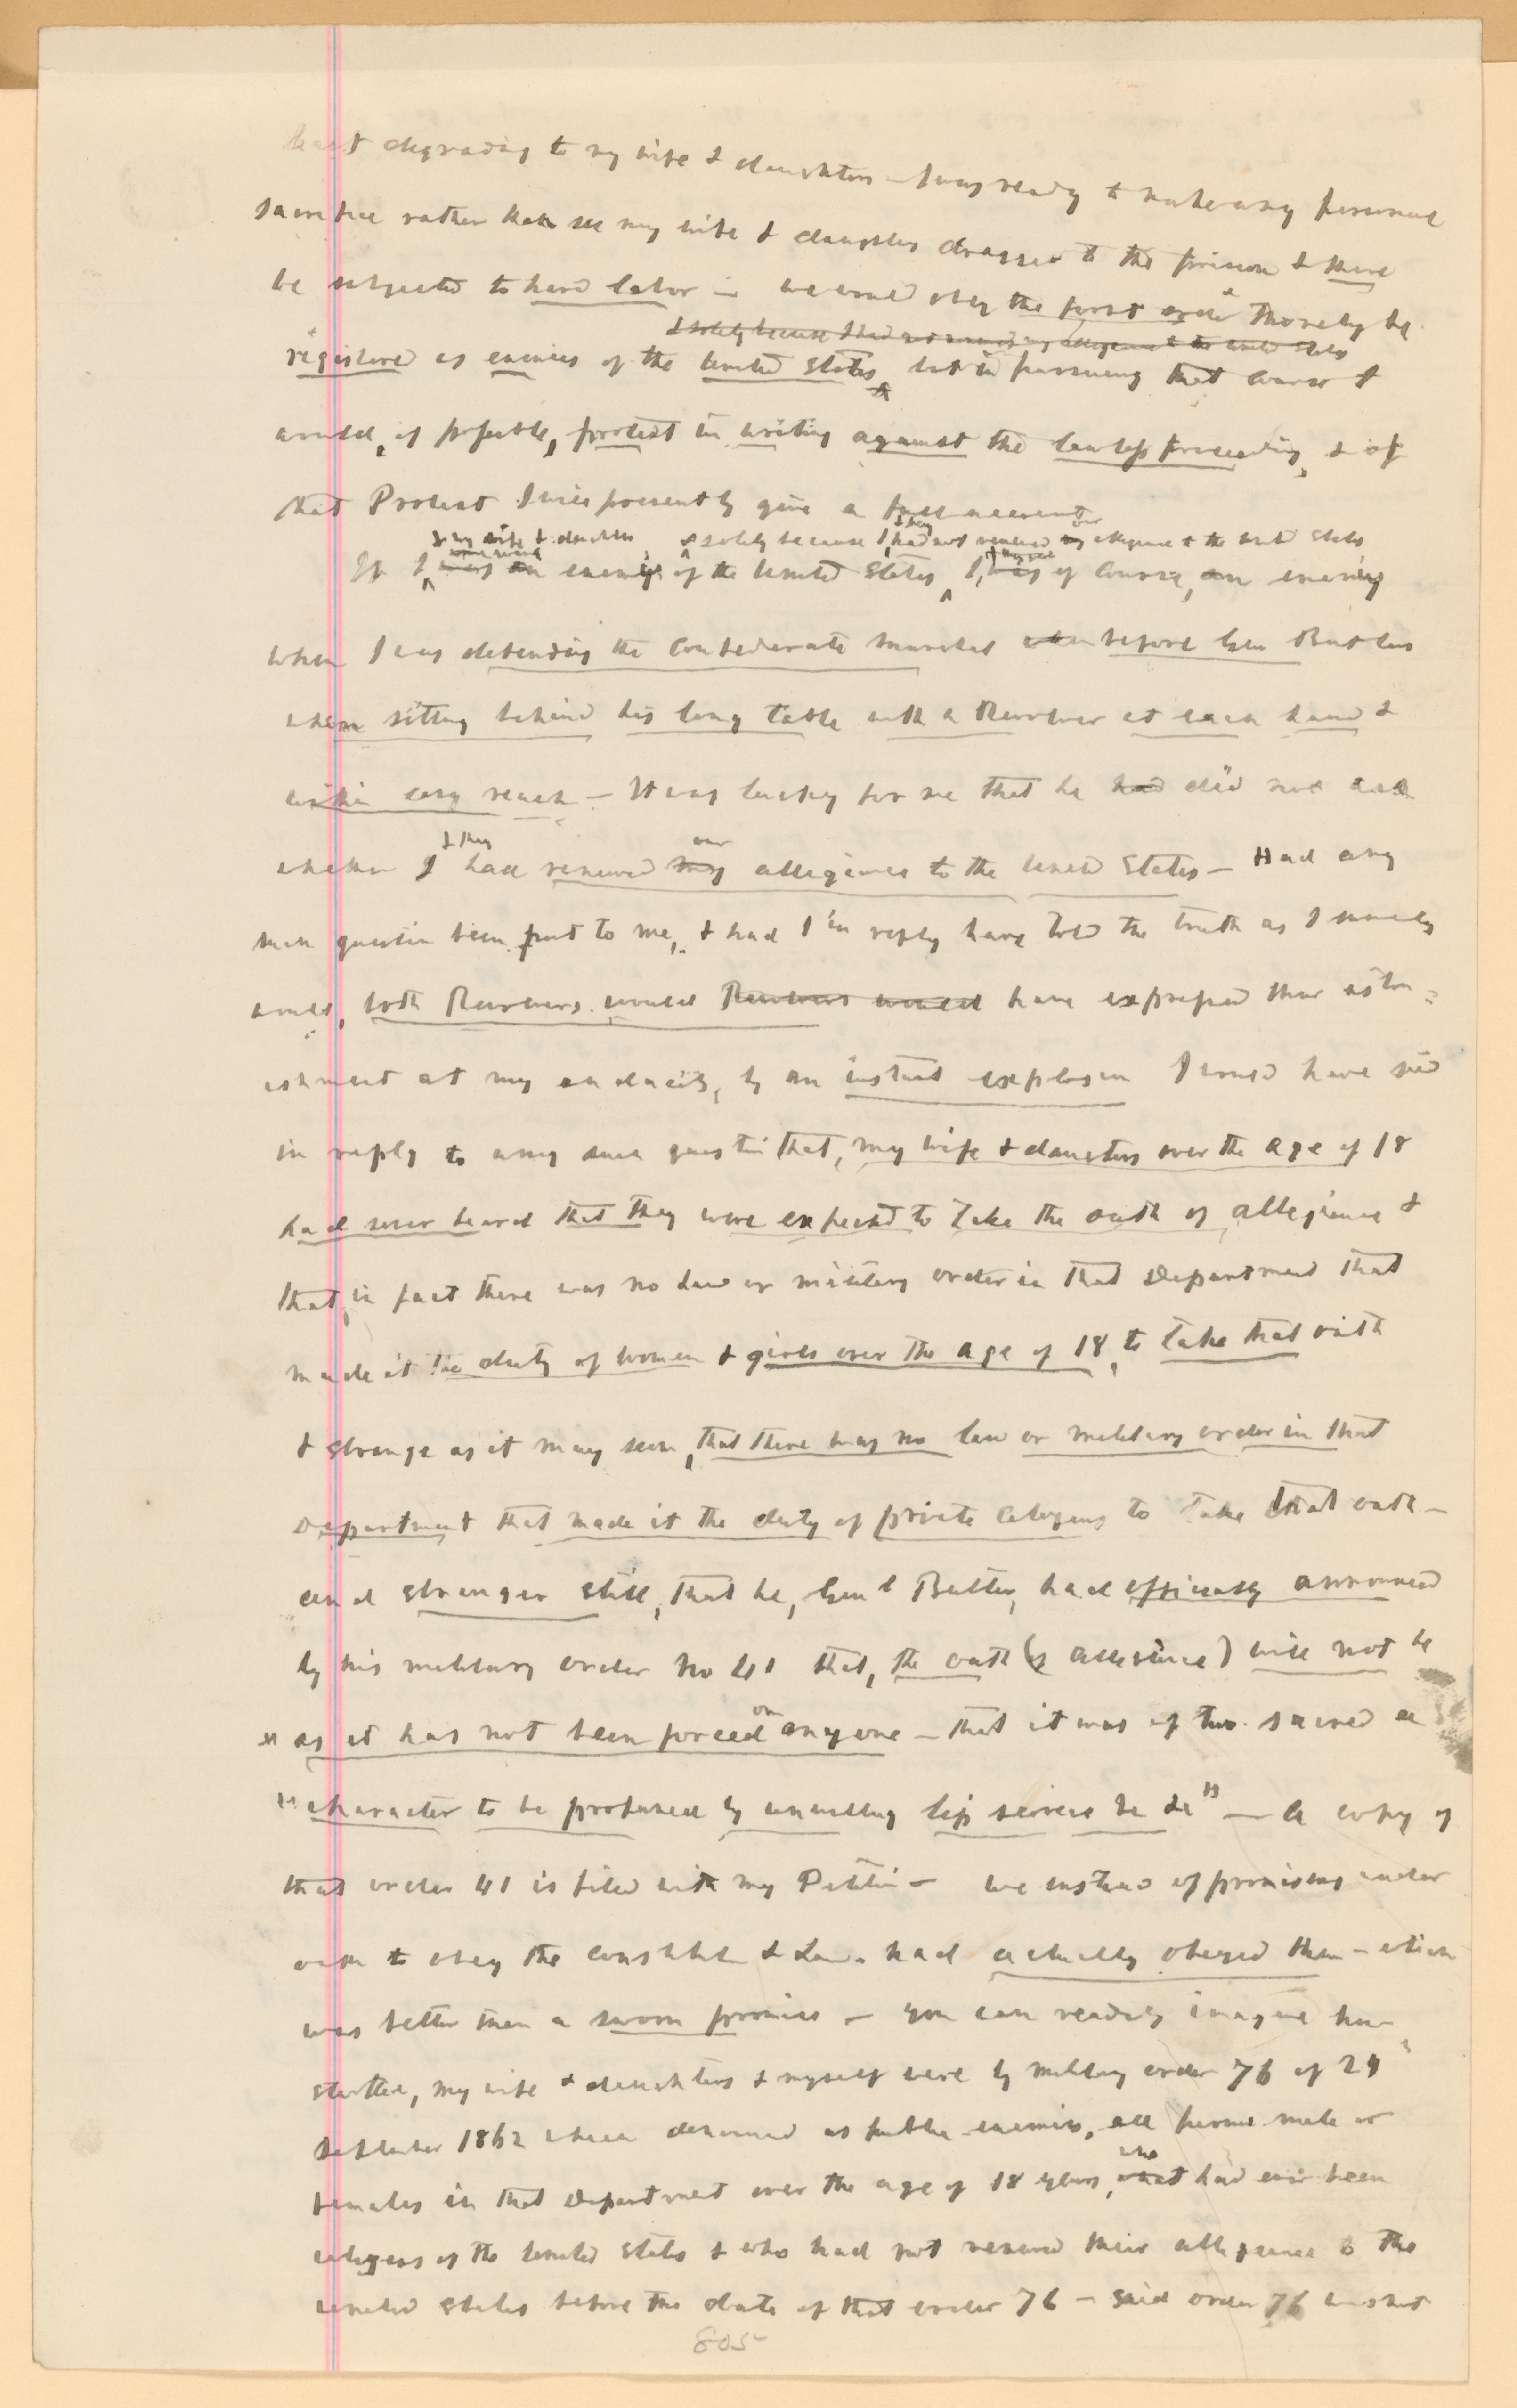 least degrading to my wife & daughters — I was ready to make any personal
sacrifice rather than see my wife & daughters dragged to the prison & there
be subjected to hard labor — we would obey the first order & thereby be
& solely because I had not renewed my allegiance to the United States
registered as enemies of the United States, but in pursuing that course I
would, if possible, protest in writing against the lawless proceeding, & of
that Protest I will presently give a full account
& my wife & daughters & solely because I & they had not renewed my our allegiance to the United States
If I was an enemies of the United States, I was of course, an enemy
when I was defending the Confederate Marshal when before Gen Butler
when sitting behind his long table with a Revolver at each hand &
within easy reach — It was lucky for me that he had did not ask
& they our
whether I had renewed my allegiance to the United States — Had any
such question been put to me, & had I in reply have told the truth as I surely
would, both Revolvers would Revolvers would have expressed their aston=
ishment at my audacity, by an instant explosion I would have said
in reply to any such question that, my wife & daughters over the age of 18
had never heard that they were expected to take the oath of allegiance &
that, in fact there was no Law or military order in that Department that
made it the duty of women & girls over the age of 18, to take that oath
& strange as it may seem, that there was no law or military order in that
Department that made it the duty of private citizens to take that oath —
and stranger still, that he, Genl Butler, had officially announced
by his military order No 41 that, the oath (of allegiance) will not be
" as it has not been forced on anyone — that it was of too sacred a
" character to be profaned by unwilling lip service &c &c" — A copy of
that order 41 is filed with my Petition — we instead of promising under
oath to obey the constitution & Laws had actually obeyed them — which
was better than a sworn promise — you can readily imagine how
startled, my wife & daughters & myself were by military order 76 of 24"
September 1862 which denounced as public enemies, all persons male or
who
females in that Department over the age of 18 years, that had ever been
citizens of the United States & who had not renewed their allegiance to the
United States before the date of that order 76 — said order 76 was not
805